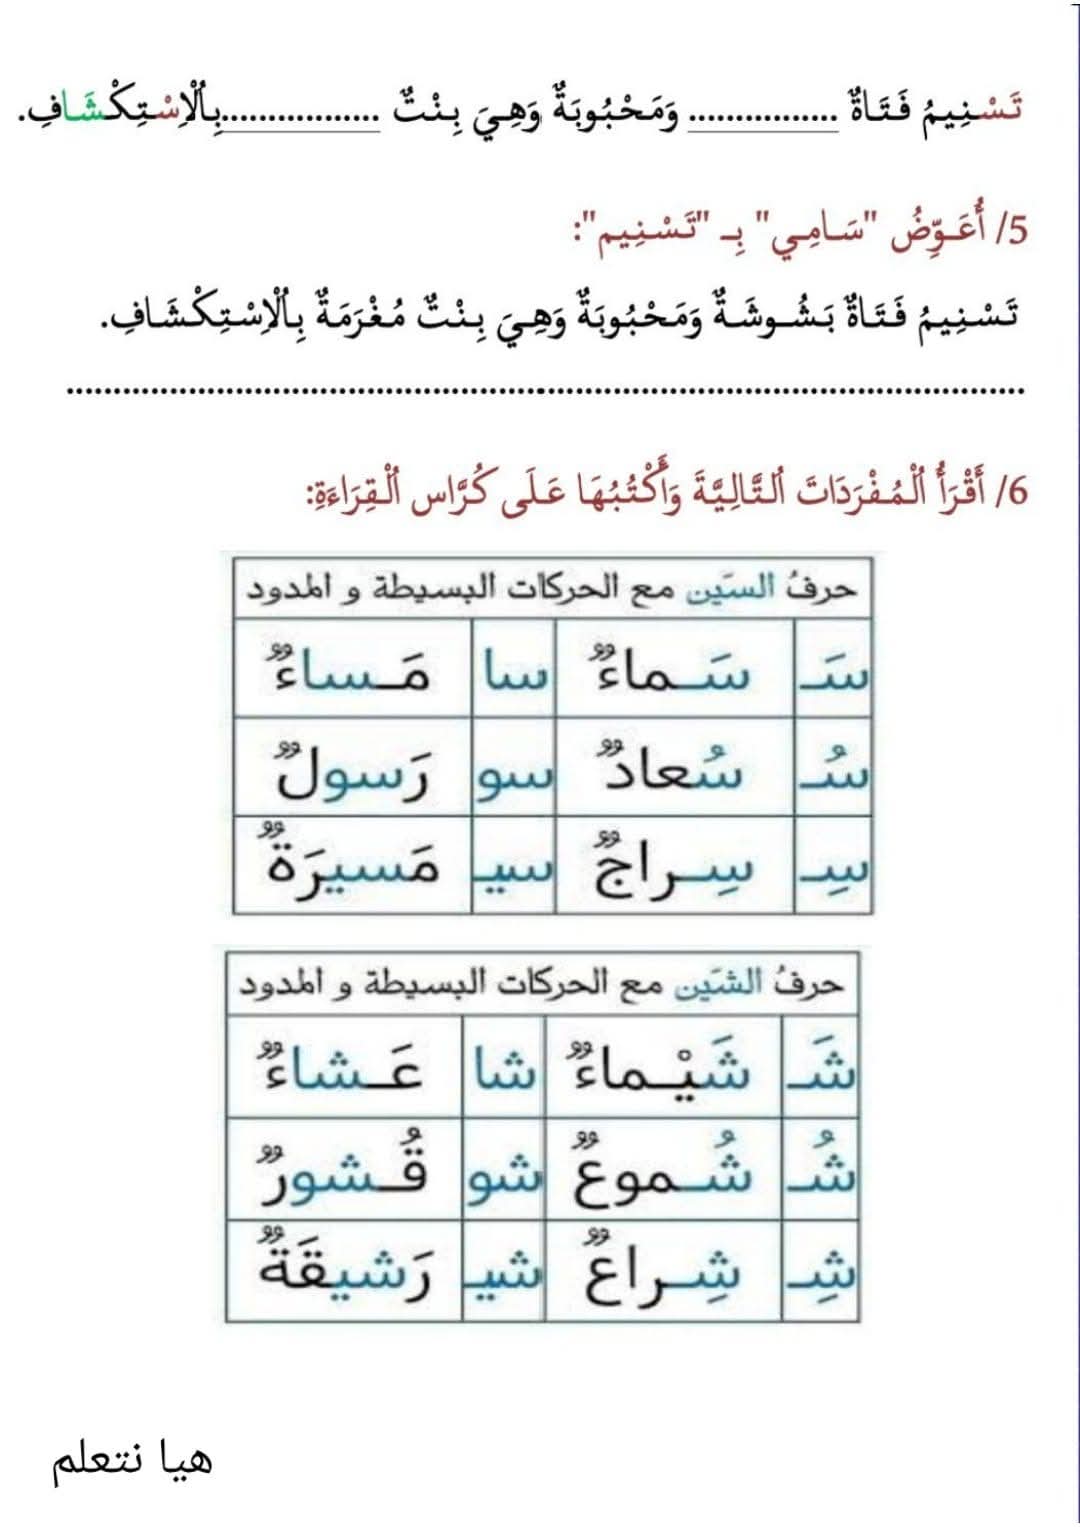 تَسْنِيمُ فَتَاةٌ ................ وَمَحْبُوبَةٌ وَهِيَ بِنْتٌ .................بِٱلْاِسْتِكْشَافِ.
5/ أُعَوِّضُ "سَامِي" بِـ "تَسْنِيم":
تَسْنِيمُ فَتَاةٌ بَشُوشَةٌ وَمَحْبُوبَةٌ وَهِيَ بِنْتٌ مُغْرَمَةٌ بِٱلْاِسْتِكْشَافِ.
................................................................................................
6/ أَقْرَأُ ٱلْمُفْرَدَاتَ ٱلتَّالِيَّةَ وَأَكْتُبُهَا عَلَى كُرَّاس ٱلْقِرَاءَةِ:
حرفُ السيَن مع الحركات البسيطة و المدود
سَـ سَـماءٌ سا مَـساءٌ
سُـ سُعادٌ سو رَسولٌ
سِـ سِـراجٌ سيـ مَسيرَةٌ
حرفُ الشيَن مع الحركات البسيطة و المدود
شَـ شَيْـماءٌ شا عَـشاءٌ
شُـ شُـموعٌ شو قُـشورٌ
شِـ شِـراعٌ شيـ رَشيقَةٌ
هيا نتعلم